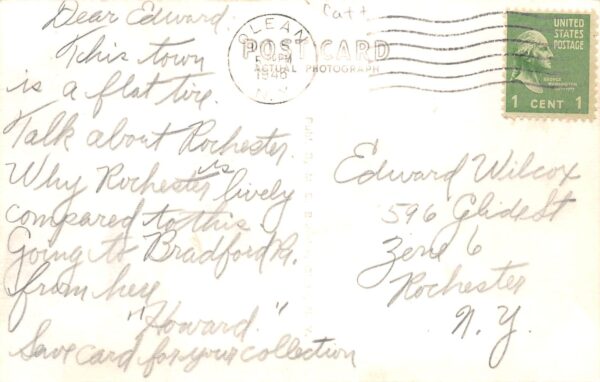 Dear Edward.
This town
is a flat tire.
Talk about Rochester.
Why Rochester is lively
compared to this
Going to Bradford Pa.
from here
"Howard."
Save card for your collection
Catt
OLEAN
1948
N.Y.
POST CARD
ACTUAL PHOTOGRAPH
UNITED
STATES
POSTAGE
GEORGE
WASHINGTON
1 CENT 1
Edward Wilcox
596 Glide St
Zone 6
Rochester
N.Y.